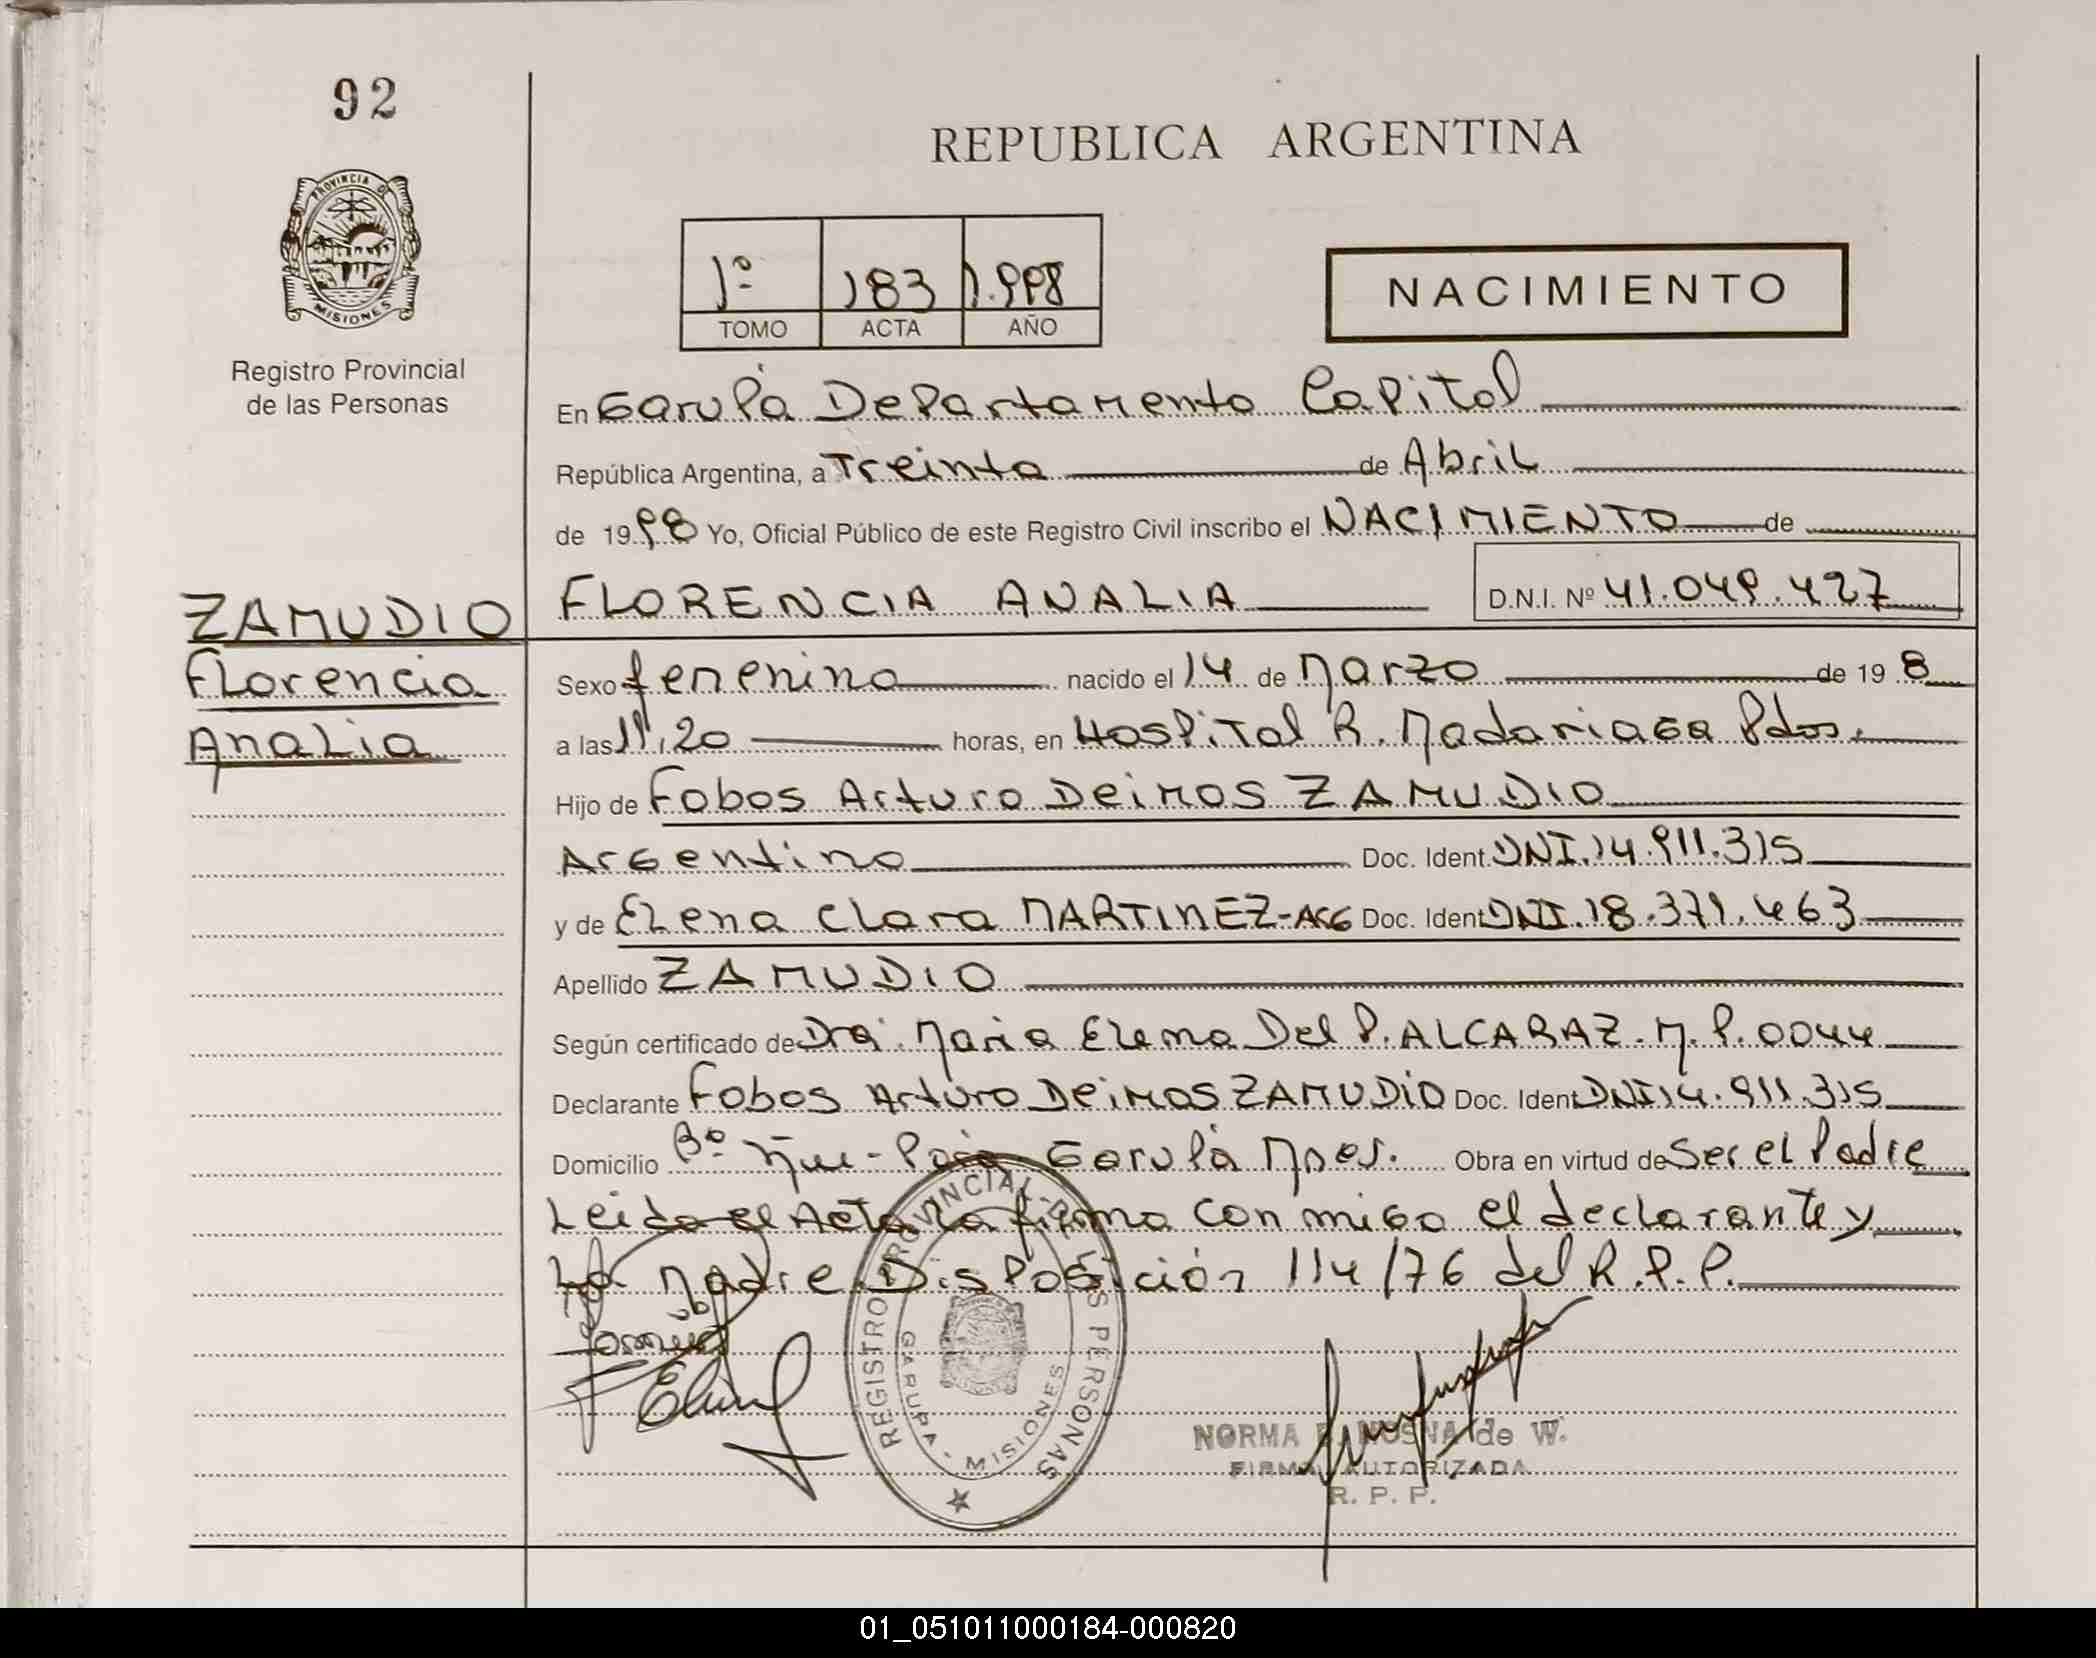 92
REPUBLICA ARGENTINA
PROVINCIA DE
MISIONES
1º 183 1.998
TOMO ACTA AÑO
NACIMIENTO
Registro Provincial
de las Personas
En Garupá Departamento Capital
República Argentina, a Treinta de Abril
de 1998 Yo, Oficial Público de este Registro Civil inscribo el NACIMIENTO de
FLORENCIA ANALIA D.N.I. Nº 41.049.427
ZAMUDIO
Florencia
Analia
Sexo femenino nacido el 14 de Marzo de 19 8
a las 11,20 horas, en Hospital R. Madariaga Pdas.
Hijo de Fobos Arturo Deimos ZAMUDIO
Argentino Doc. Ident. DNI.14.911.315
y de Elena Clara MARTINEZ-Arg Doc. Ident DNI.18.371.463
Apellido ZAMUDIO
Según certificado de Dra. Maria Elena Del P. ALCARAZ. M.P. 0044
Declarante Fobos Arturo Deimos ZAMUDIO Doc. Ident DNI 14.911.315
Domicilio Bº Garupá Mnes. Obra en virtud de Ser el Padre
Leida el Acta la firma con migo el declarante y
La Madre Disposición 114/76 del R.P.P.
REGISTRO PROVINCIAL DE LAS PERSONAS
GARUPA - MISIONES
NORMA MOSNA de W.
FIRMA AUTORIZADA
R. P. P.
01_051011000184-000820